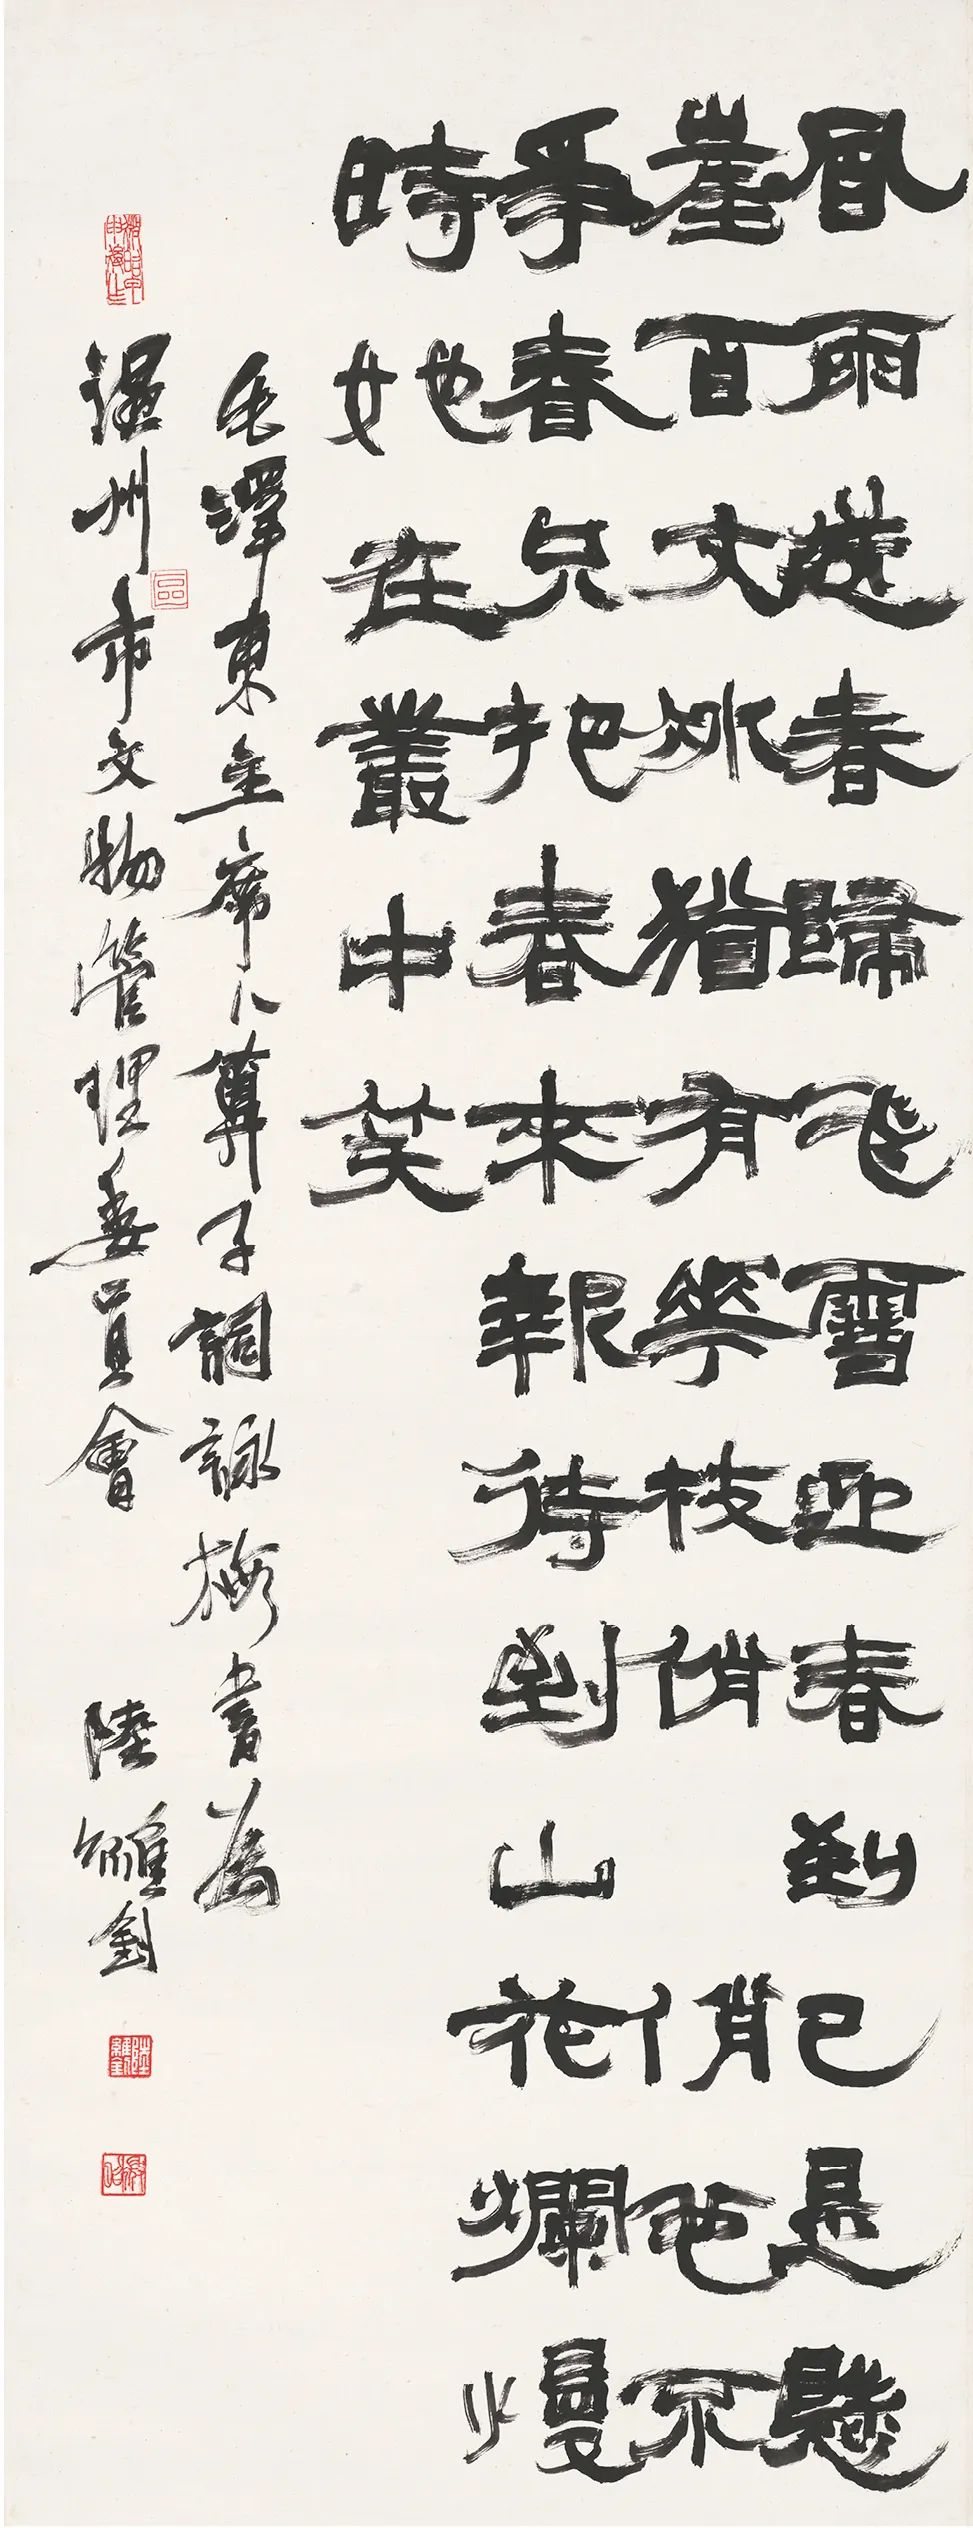 風雨送春歸飛雪迎春到已是懸
崖百丈冰猶有華枝俏俏也不
爭春只把春來報待到山花爛慢
時她在叢中笑
毛澤東主席卜算子詞詠梅書為
溫州市文物管理委員會 陸維釗
陸維釗